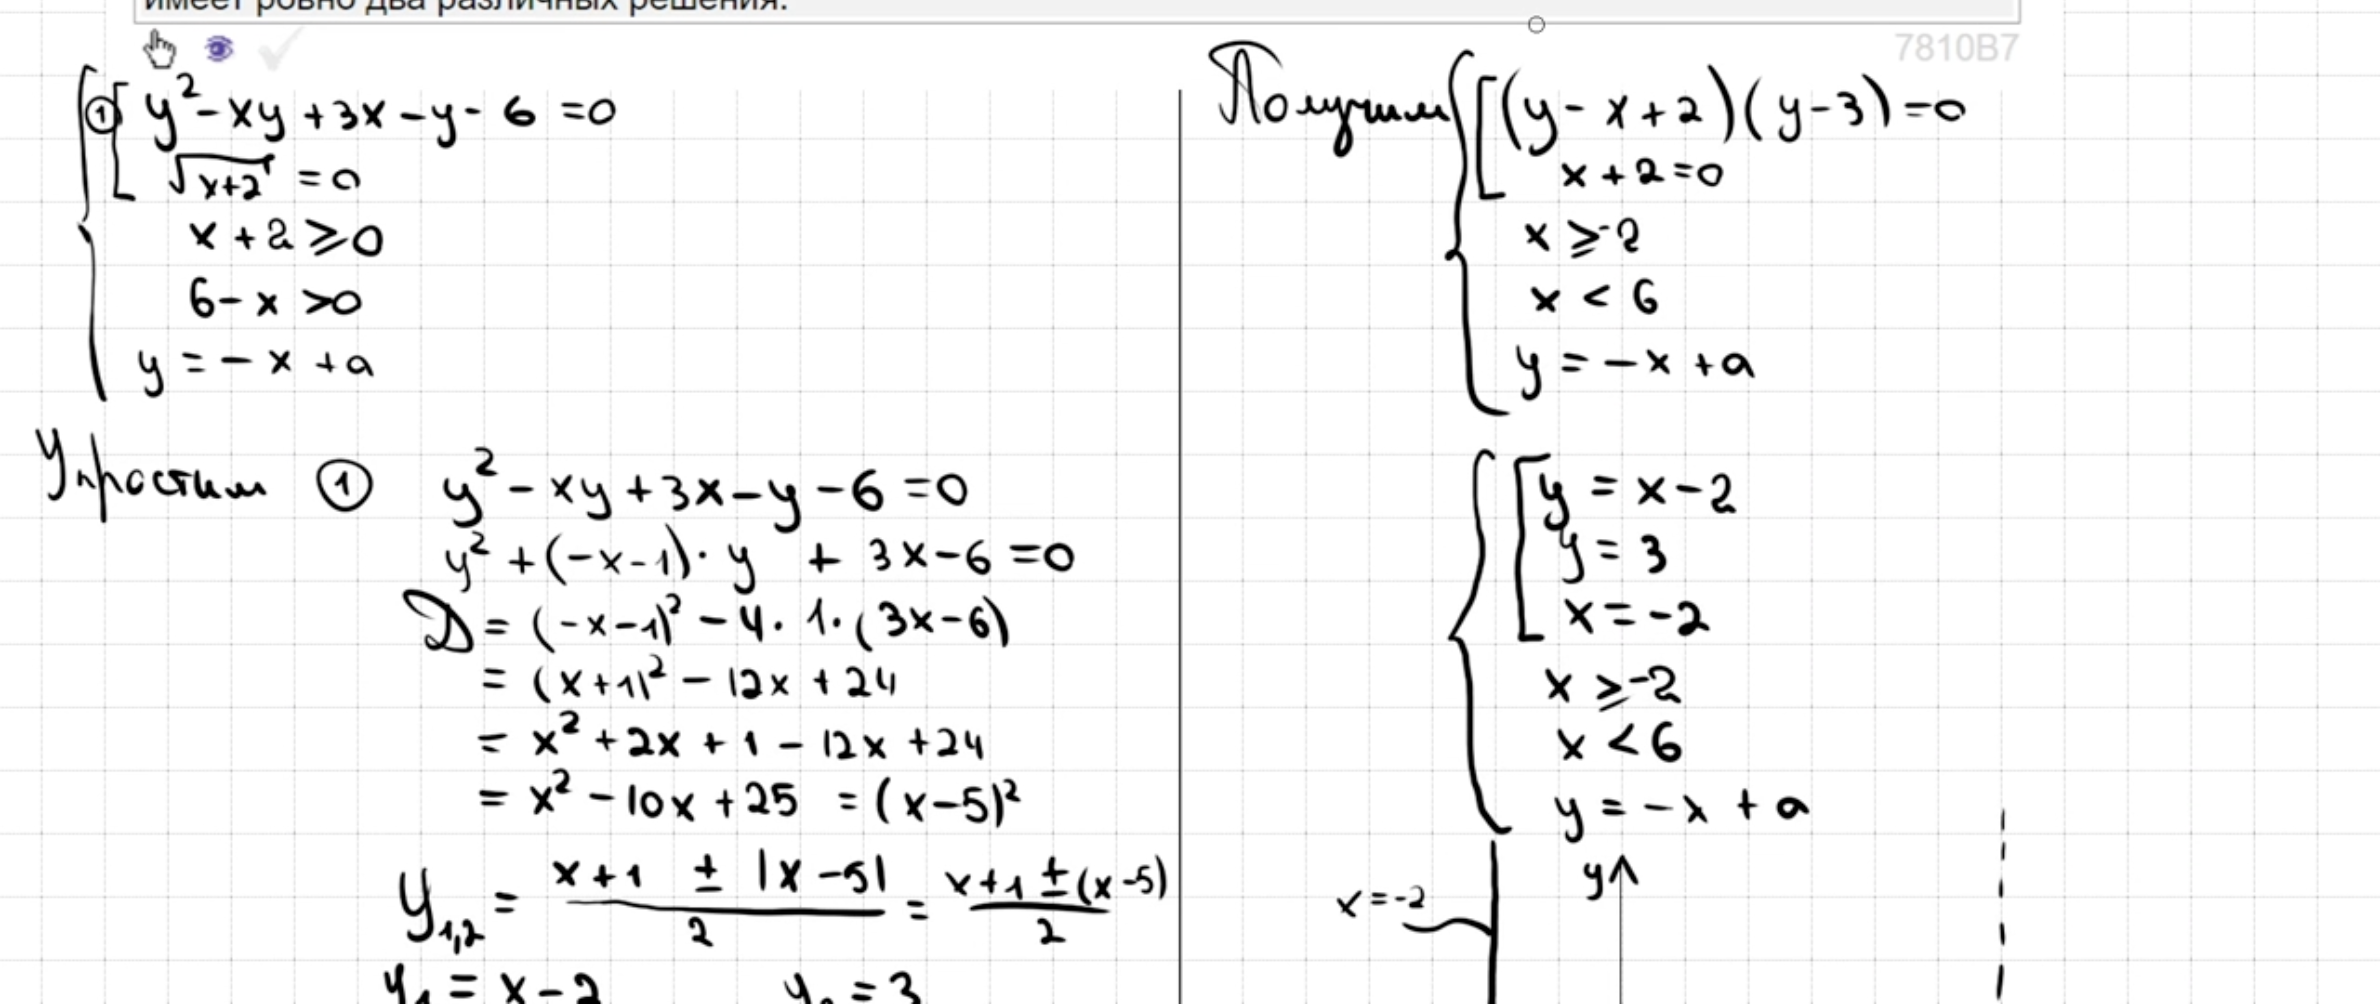 имеет ровно два различных решения.
7810B7
① y² - xy + 3x - y - 6 = 0
√(x+2) = 0
x + 2 ⩾ 0
6 - x > 0
y = - x + a
Упростим ① y² - xy + 3x - y - 6 = 0
y² + (-x-1)·y + 3x - 6 = 0
D = (-x-1)² - 4·1·(3x-6)
= (x+1)² - 12x + 24
= x² + 2x + 1 - 12x + 24
= x² - 10x + 25 = (x-5)²
y₁,₂ = (x+1 ± |x-5|)/2 = (x+1 ± (x-5))/2
y₁ = x - 2 y₂ = 3
Получим (y - x + 2)(y - 3) = 0
x + 2 = 0
x ⩾ -2
x < 6
y = - x + a
y = x - 2
y = 3
x = -2
x ⩾ -2
x < 6
y = - x + a
x = -2 y